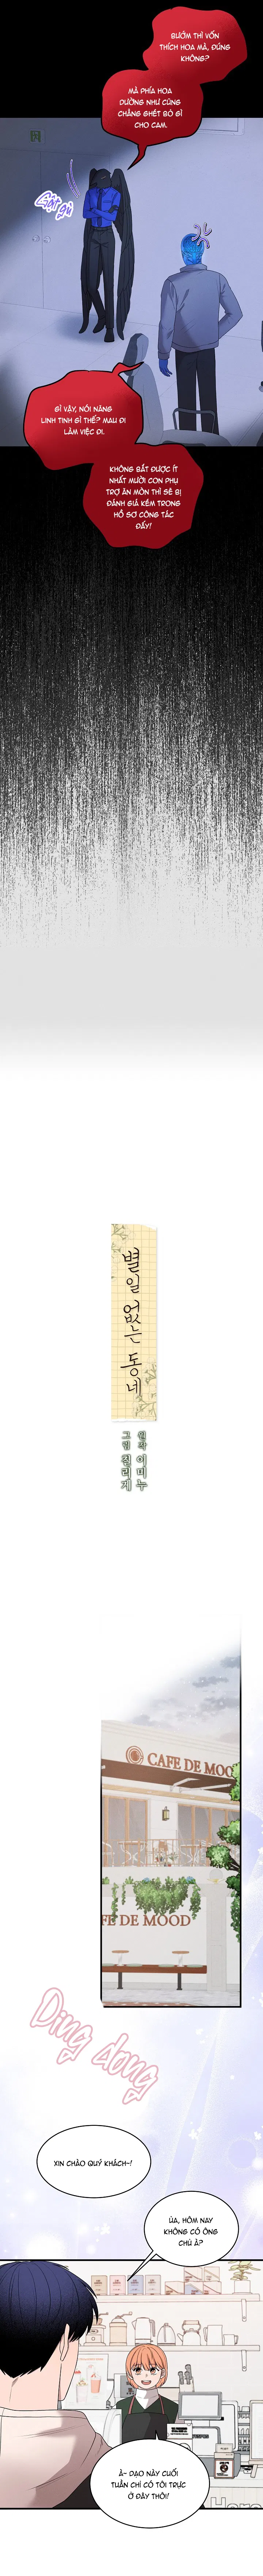 BƯỚM THÌ VỐN
THÍCH HOA MÀ, ĐÚNG
KHÔNG?
MÀ PHÍA HOA
DƯỜNG NHƯ CŨNG
CHẲNG GHÉT BỎ GÌ
CHO CAM.
GÌ VẬY, NÓI NĂNG
LINH TINH GÌ THẾ? MAU ĐI
LÀM VIỆC ĐI.
KHÔNG BẮT ĐƯỢC ÍT
NHẤT MƯỜI CON PHỤ
TRỢ ĂN MÒN THÌ SẼ BỊ
ĐÁNH GIÁ KÉM TRONG
HỒ SƠ CÔNG TÁC
ĐẤY!
별일 없는 동네
원작 이미누
그림 전리게
CAFE DE MOO
FE DE MOOD
Ding dong
XIN CHÀO QUÝ KHÁCH~!
ỦA, HÔM NAY
KHÔNG CÓ ÔNG
CHÚ À?
À- DẠO NÀY CUỐI
TUẦN CHỈ CÓ TÔI TRỰC
Ở ĐÂY THÔI!